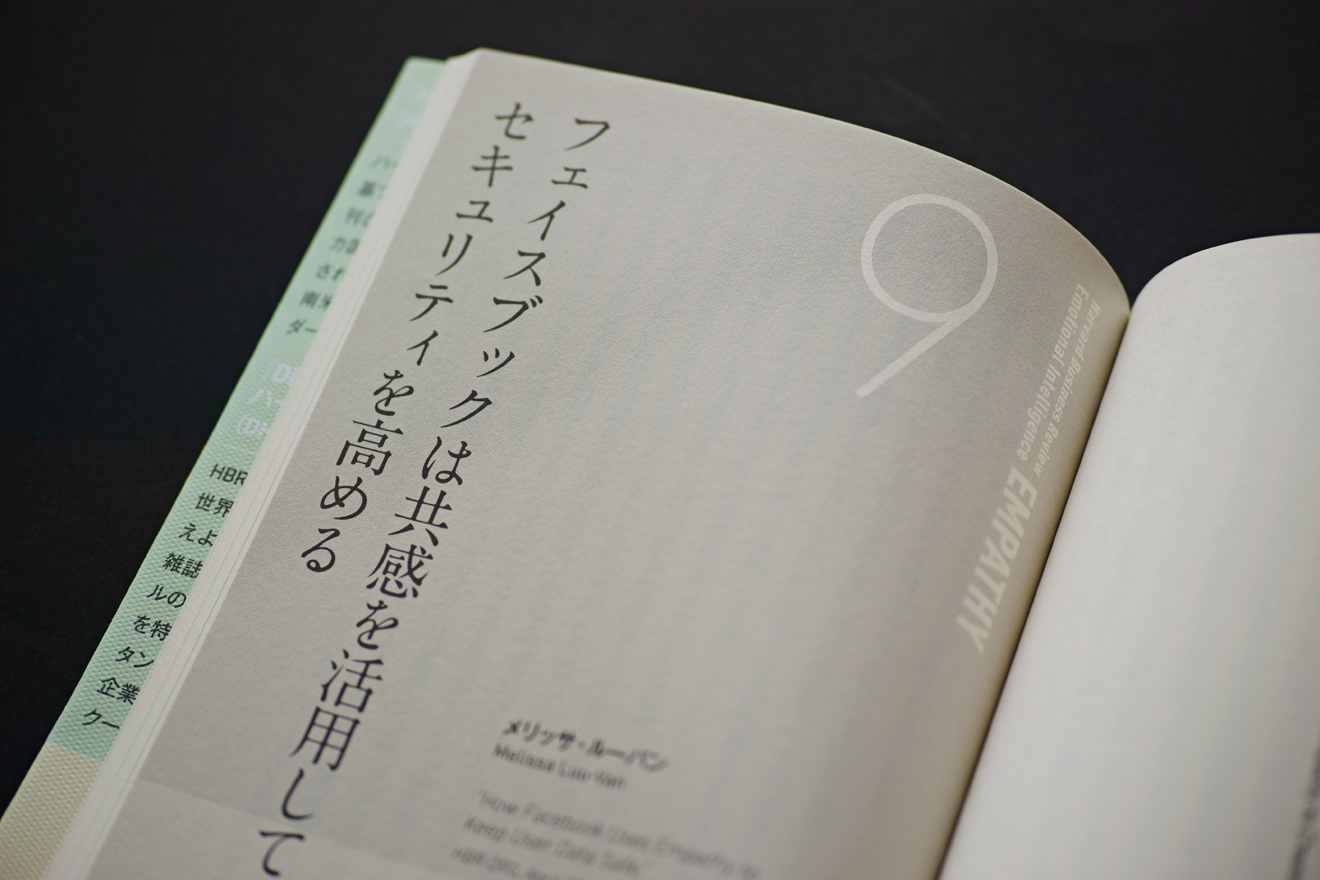 9
Harvard Business Review
Emotional Intelligence
EMPATHY
フェイスブックは共感を活用して
セキュリティを高める
メリッサ・ルーバン
Melissa Luu-Van
"How Facebook Uses Empathy to
Keep User Data Safe,"
HBR.ORG
HBR
世界
えよ
雑誌
ルの
を特
タン
企業
クー